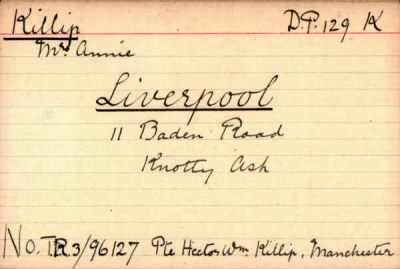 Killip D.P. 129 K
Mrs Annie
Liverpool
11 Baden Road
Knotty Ash
No. T.R.3/96127 Pte Hector Wm. Killip, Manchester